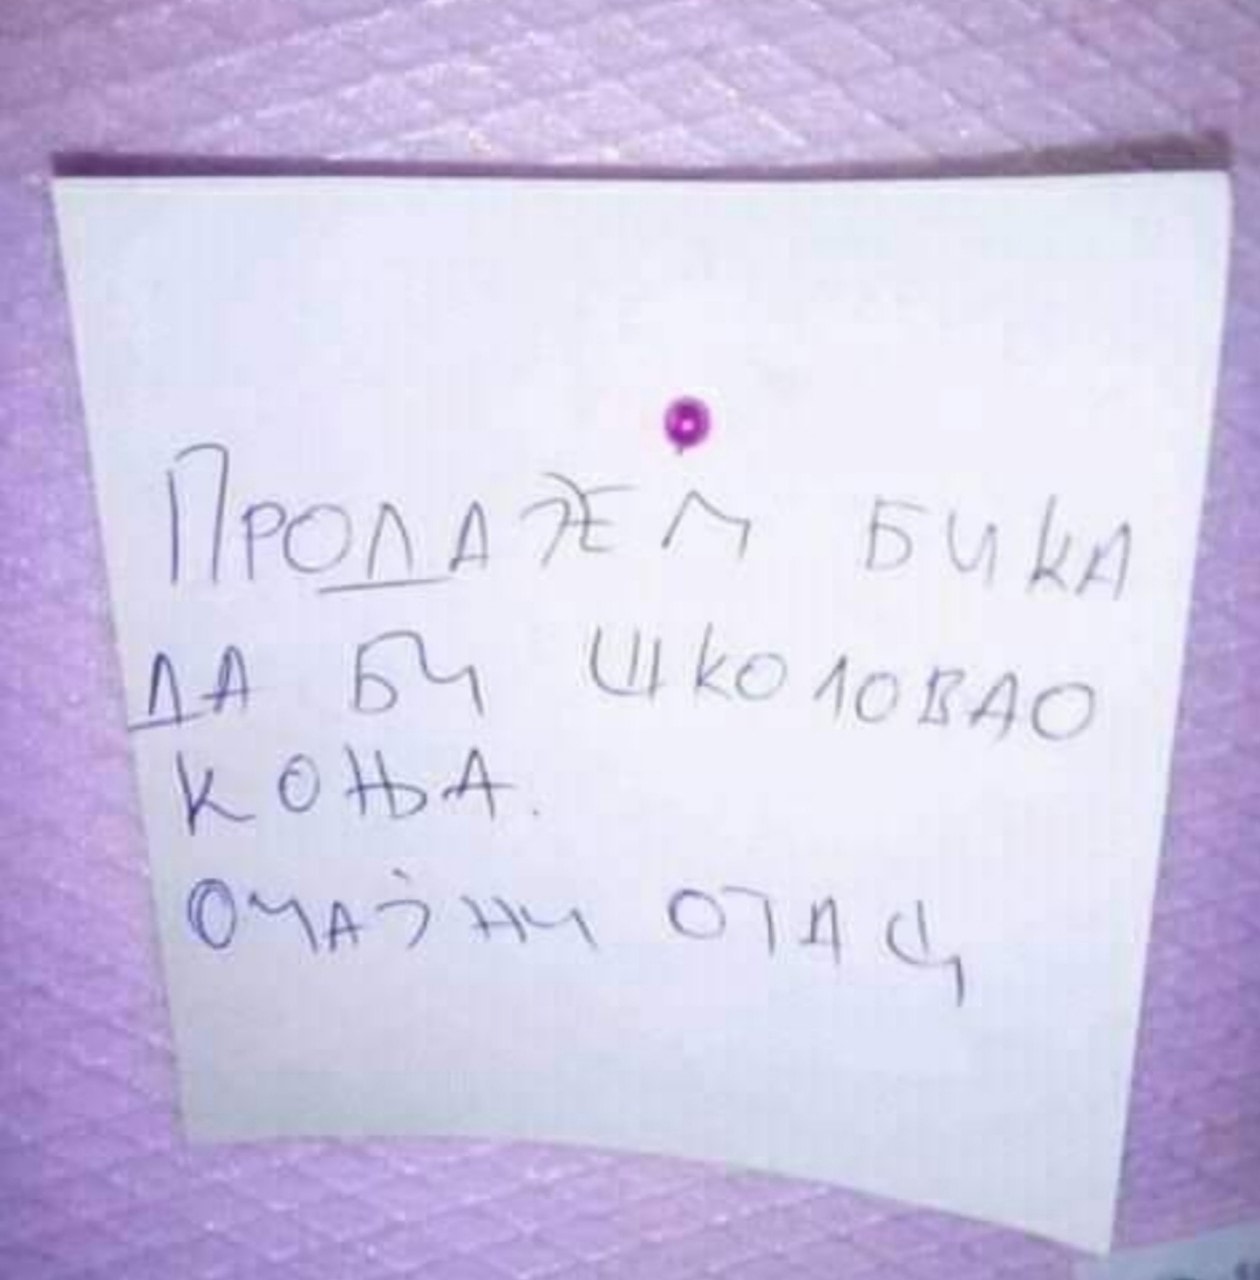 ПРОДАЖЕМ БИКА
ДА БИ ШКОЛОВАО
КОЊА.
ОЧАЈНИ ОТАЦ